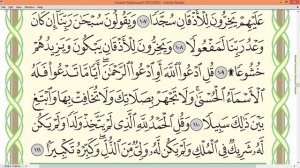 عَلَيْهِمْ يَخِرُّونَ لِلْأَذْقَانِ سُجَّدًا ١٠٧ وَيَقُولُونَ سُبْحَانَ رَبِّنَا إِن كَانَ
وَعْدُ رَبِّنَا لَمَفْعُولًا ١٠٨ وَيَخِرُّونَ لِلْأَذْقَانِ يَبْكُونَ وَيَزِيدُهُمْ
خُشُوعًا ١٠٩ قُلِ ادْعُوا اللَّهَ أَوِ ادْعُوا الرَّحْمَنَ أَيًّا مَّا تَدْعُوا فَلَهُ
الْأَسْمَاءُ الْحُسْنَى وَلَا تَجْهَرْ بِصَلَاتِكَ وَلَا تُخَافِتْ بِهَا وَابْتَغِ
بَيْنَ ذَلِكَ سَبِيلًا ١١٠ وَقُلِ الْحَمْدُ لِلَّهِ الَّذِي لَمْ يَتَّخِذْ وَلَدًا وَلَمْ يَكُن
لَّهُ شَرِيكٌ فِي الْمُلْكِ وَلَمْ يَكُن لَّهُ وَلِيٌّ مِّنَ الذُّلِّ وَكَبِّرْهُ تَكْبِيرًا ١١١